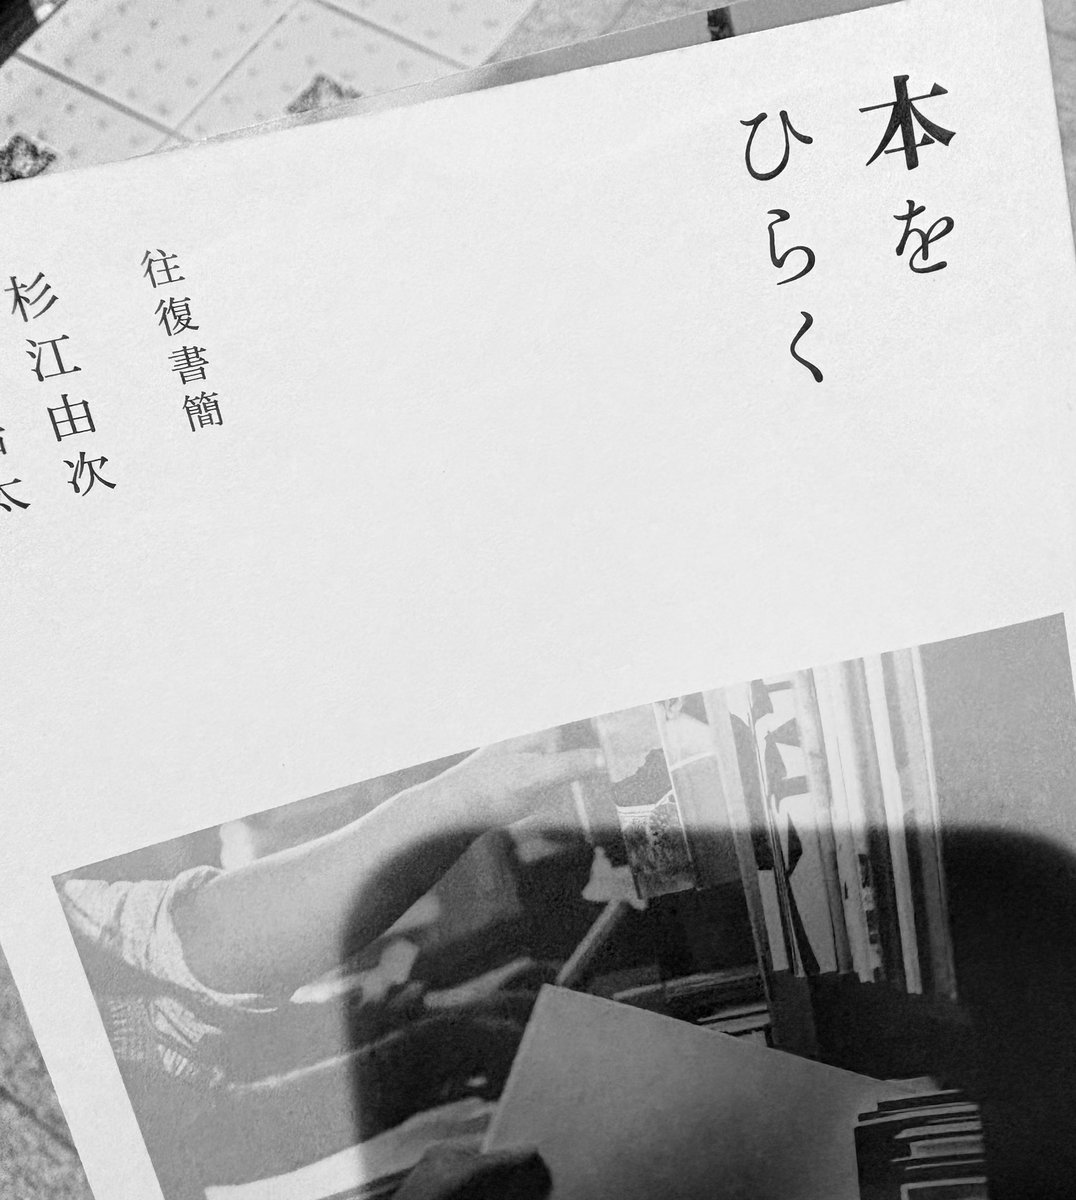 本を
ひらく
往復書簡
杉江由次
太